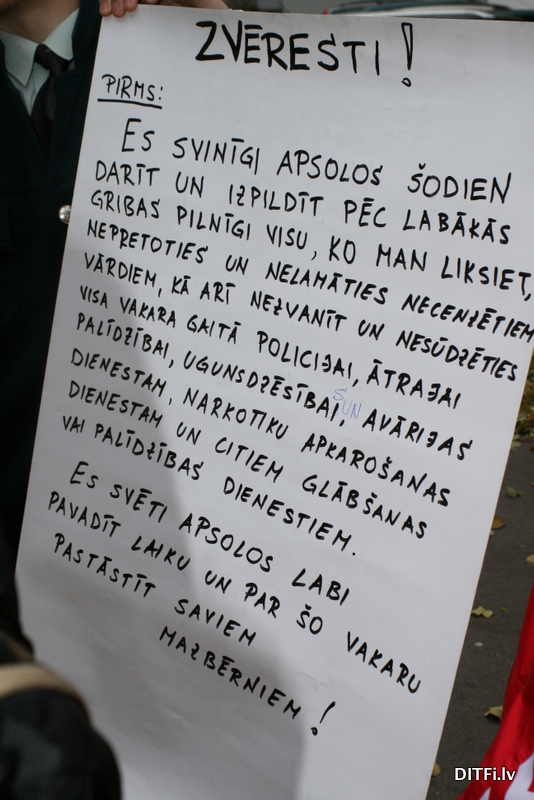 ZVĒRESTI!
PIRMS:
ES SVINĪGI APSOLOS ŠODIEN
DARĪT UN IZPILDĪT PĒC LABĀKĀS
GRIBAS PILNĪGI VISU, KO MAN LIKSIET,
NEPRETOTIES UN NELAMĀTIES NECENZĒTIEM
VĀRDIEM, KĀ ARĪ NEZVANĪT UN NESŪDZĒTIES
VISA VAKARA GAITĀ POLICIJAI, ĀTRAJAI
PALĪDZĪBAI, UGUNSDZĒSĪBAI, SUN AVĀRIJAS
DIENESTAM, NARKOTIKU APKAROŠANAS
DIENESTAM UN CITIEM GLĀBŠANAS
VAI PALĪDZĪBAS DIENESTIEM.
ES SVĒTI APSOLOS LABI
PAVADĪT LAIKU UN PAR ŠO VAKARU
PASTĀSTĪT SAVIEM
MAZBĒRNIEM!
DITFi.lv